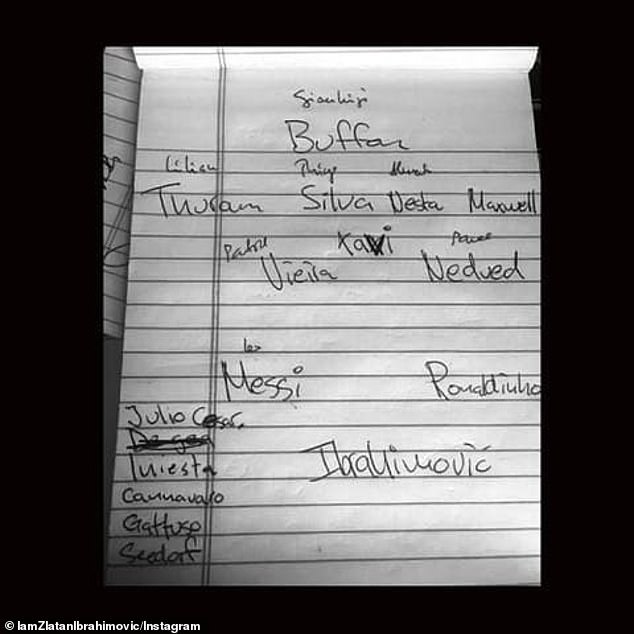 Gianluigi
Buffon
Lilian Thiago Alessandro
Thuram Silva Nesta Maxwell
Xavi
Patrick Pavel
Vieira Nedved
Leo
Messi Ronaldinho
Julio Cesar
De gea
Iniesta Ibrahimović
Cannavaro
Gattuso
Seedorf
© IamZlatanIbrahimovic/Instagram